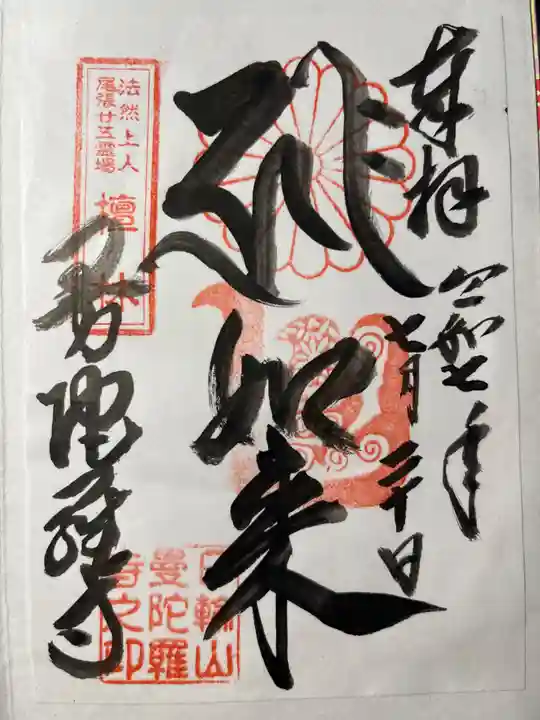 奉拝 令和七年
七月二十日
如来
法然上人
尾張廿五霊場
檀林
曼陀羅寺
日輪山
曼陀羅
寺之印